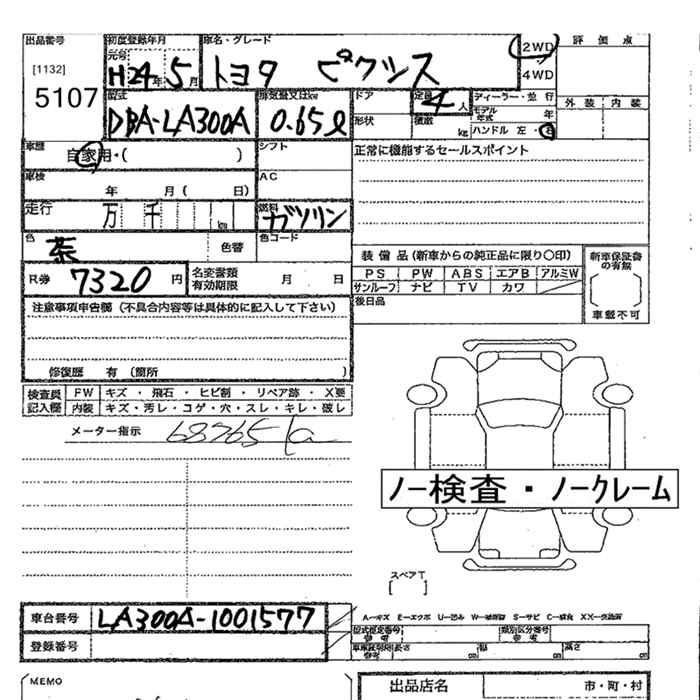 出品番号 初度登録年月 車名・グレード 2WD 評価点
[1132] 元号 H24年 5月 トヨタ ピクシス 4WD
5107 型式 排気量又はkw ドア 定員 4人 ディーラー・並行 外装 内装
DBA-LA300A 0.65ℓ 形状 積載 kg モデル年式 年
ハンドル 左・右
車歴 自家用・( ) シフト 正常に機能するセールスポイント
車検 年 月( 日) AC
走行 万 千 km 燃料 ガソリン
色 茶 色替 色コード 装備品(新車からの純正品に限り○印) 新車保証書の有無
R券 7320円 名変書類有効期限 月 日 PS PW ABS エアB アルミW
サンルーフ ナビ TV カワ
注意事項申告欄(不具合内容等は具体的に記入して下さい) 後日品 車載不可
修復歴 有(箇所
検査員記入欄 FW キズ・飛石・ヒビ割・リペア跡・X要
内装 キズ・汚レ・コゲ・穴・スレ・キレ・破レ
メーター指示 68765
ノー検査・ノークレーム
スペアT
[ ]
車台番号 LA300A-1001577
A-キズ E-エクボ U-凹み
登録番号 型式指定番号 参考 類別区分番号 参考
車庫証明用参考 長さ cm 幅 cm 高さ cm
MEMO 出品店名 市・町・村